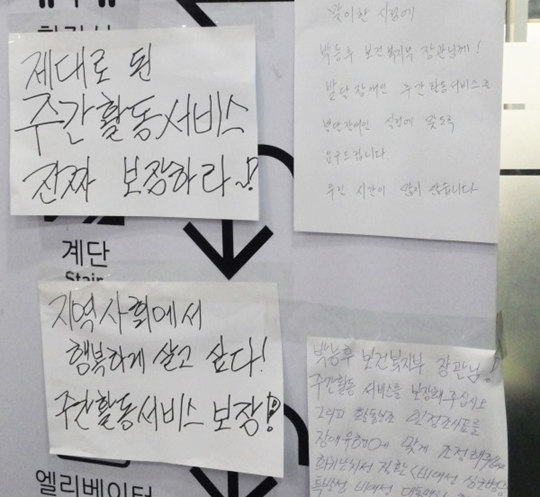 제대로 된
주간활동서비스
진짜 보장하라~!
맞이한 시점에
박능후 보건복지부 장관님께!
발달장애인 주간활동서비스
발달장애인 실정에 맞도록
요구드립니다
주간 시간이 많지 않습니다
계단
Stair
지역사회에서
행복하게 살고 싶다!
주간활동서비스 보장!
박능후 보건복지부 장관님!
주간활동 서비스를 보장해주십시오
그리고 활동보조 인정조사표를
장애유형에 맞게 조정해주
엘리베이터